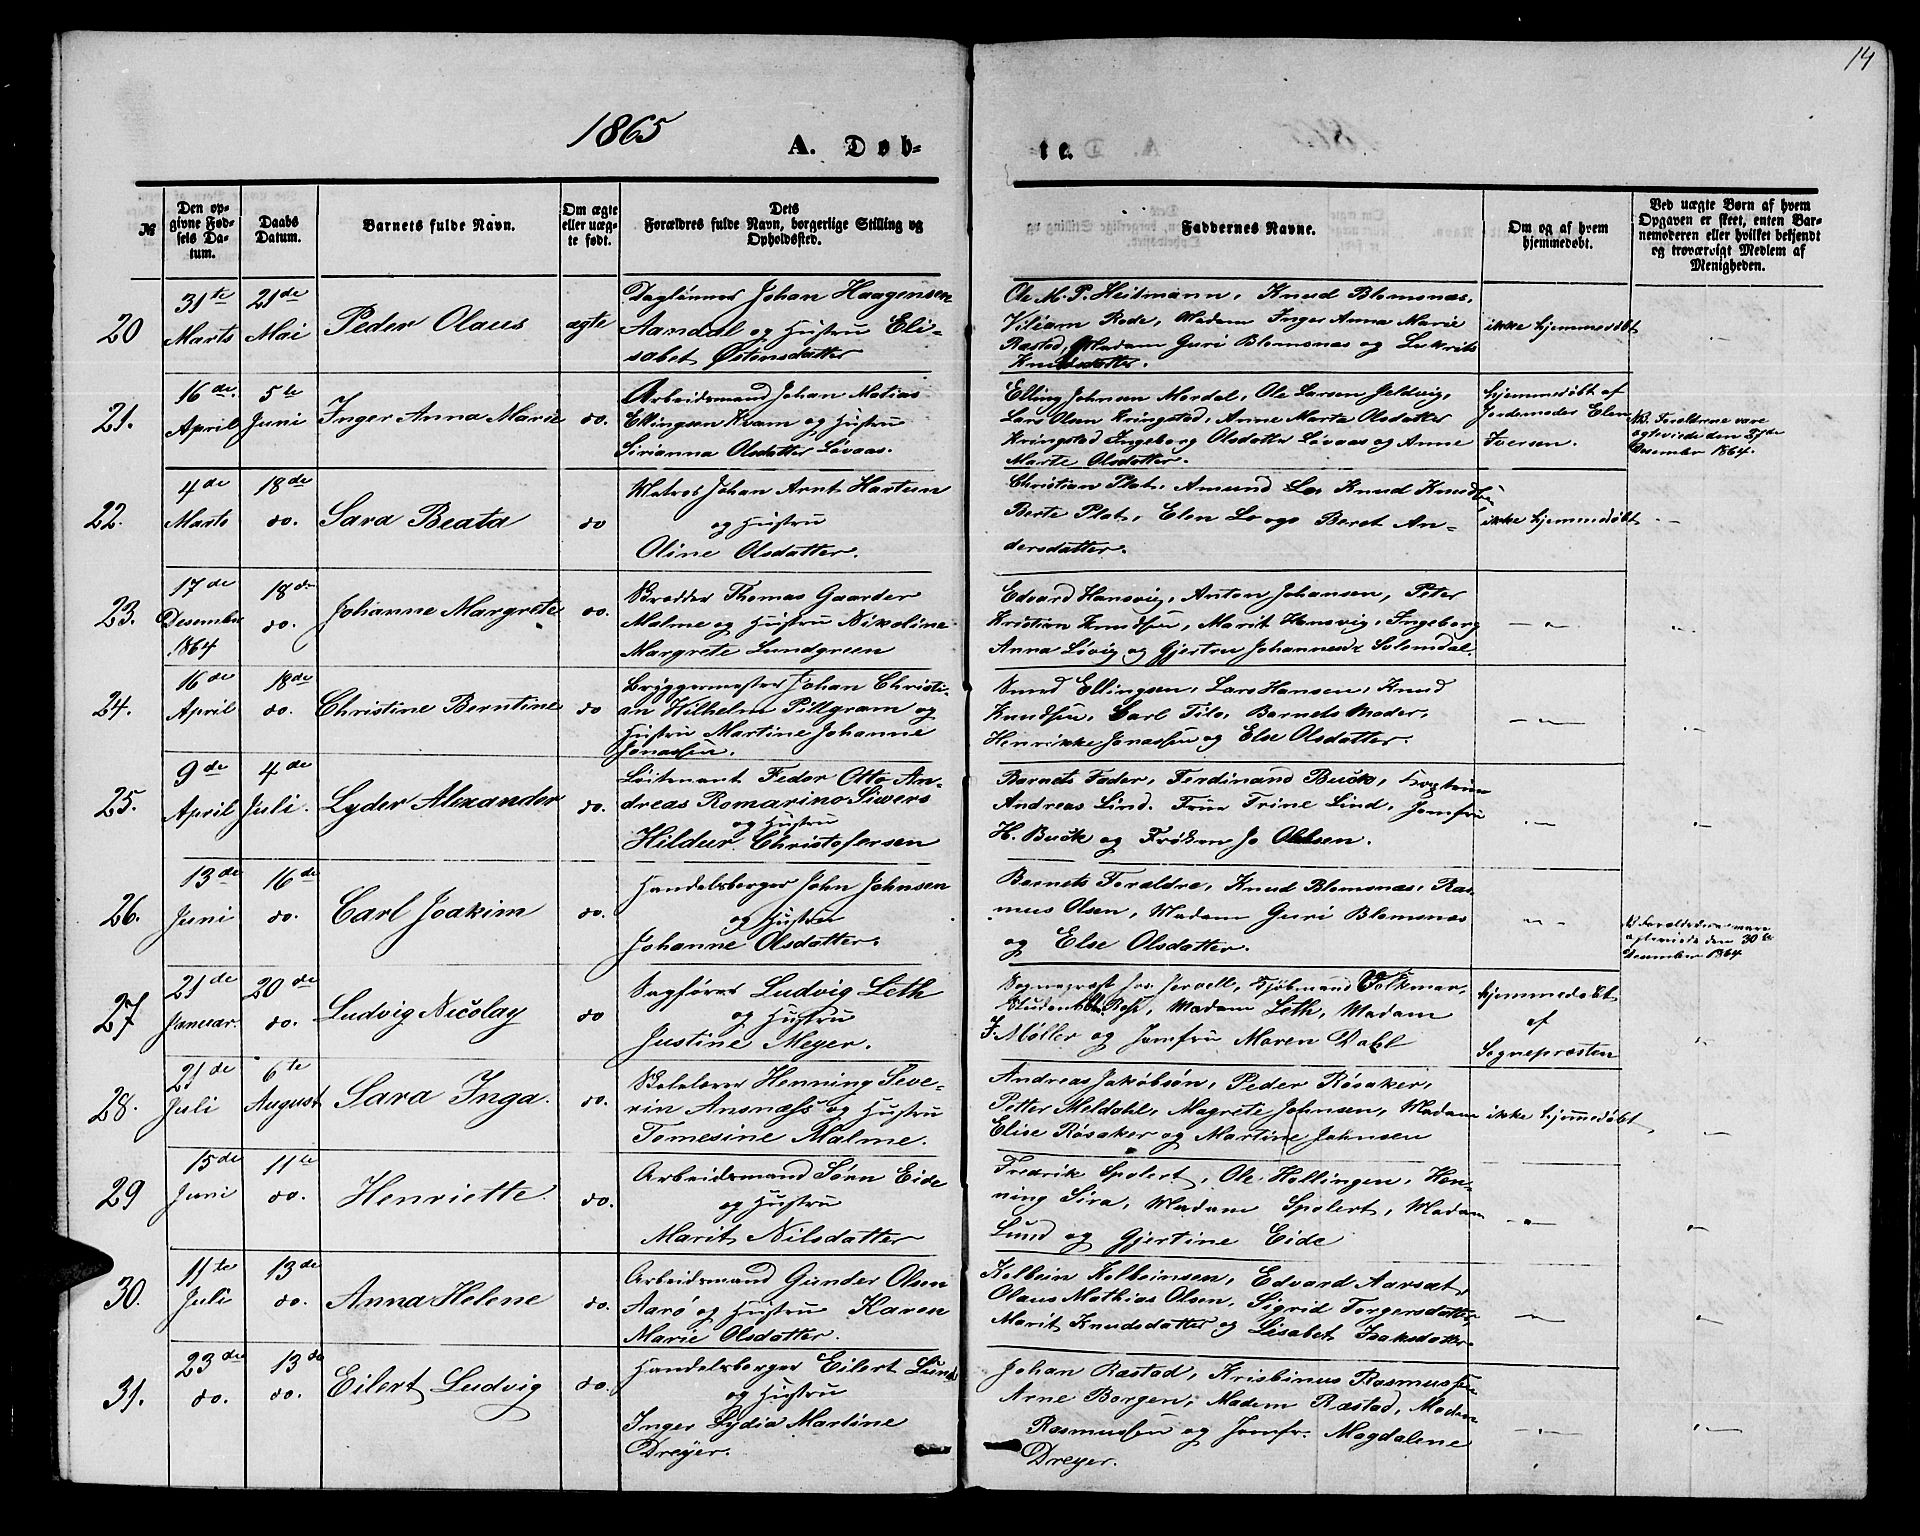 14
1865
A. Døb-
te.
№
Den op-
givne Fød-
sels Da-
tum.
Daabs
Datum.
Barnets fulde Navn.
Om ægte
eller uæg-
te født.
Dets
Forældres fulde Navn, borgerlige Stilling og
Opholdssted.
Faddernes Navne.
Om og af hvem
hjemmedøbt.
Ved uægte Børn af hvem
Opgaven er skeet, enten Bar-
nemoderen eller hvilket bekjendt
og troværdigt Medlem af
Menigheden.
20
31te
Marts
21de
Mai
Peder Olaus
ægte
Daglønner Johan Haagensen
Aandal og Hustru Eli-
sabet Østensdatter
Ole M. P. Heitmann, Knud Blomsnæs,
Viliam Rode, Madam Inger Anna Marie
Rastad, Madam Guri Blomsnæs og Lukrits
Knudsdatter.
ikke hjemmedøbt
21.
16de
April
5te
Juni
Inger Anna Marie
do.
Arbeidsmand Johan Matias
Ellingsen Kvam og Hustru
Sirianna Olsdatter Løvaas.
Elling Johnsen Mordal, Ole Larsen Jeldvig,
Lars Olsen Kringstad, Anne Marta Olsdatter
Kringstad Ingeborg Olsdatter Løvaas og Anne
Marte Olsdatter.
hjemmedøbt af
Jordemoder Elen
Iversen.
NB. Foreldrene vare
ægteviede den
Desember 1864.
22.
4de
Marts
18de
do.
Sara Beata
do
Matros Johan Arnt Hartsen
og Hustru
Oline Olsdatter.
Christian Plat, Amund Lo Knud Knudsen
Berte Plat, Elen Lo ogs Beret An-
dersdatter.
ikke hjemmedøbt
23.
17de
Desember
1864
18de
do.
Johanne Margrete
do.
Skredder Thomas Gaarder
Malme og Hustru Nikoline
Margrete Lundgreen
Edvard Hansvig, Anton Johansen, Peter
Kristian Knudsen, Marit Hansvig, Ingeborg
Anna Løvig og Gjertru Johannesd. Solemdal.
24.
16de
April
18de
do.
Christine Berntine
do
Bryggermester Johan Christi-
an Wilhelm Pillgram og
Hustru Martine Johanne
Jonassen.
Smed Ellingsen, Lars Hansen, Knud
Knudsen, Carl Tilo, Barnets Moder,
Henrikke Jonassen og Else Olsdatter.
25.
9de
April
4de
Juli.
Lyder Alexander
do.
Løitenant Fedor Otto An-
dreas Romarino Siwers
og Hustru
Hildur Christofersen
Barnets Fader, Ferdinand Buck,
Andreas Lind. Frue Trine Lind, Jomfru
H. Buck og Frøken Jo Olsen.
26.
13de
Juni
16de
do.
Carl Joakim
do.
Handelsborger John Johnsen
og Hustru
Johanne Olsdatter.
Barnets Foreldre, Knud Blomsnæs, Ras-
mus Olsen, Madam Guri Blomsnæs
og Else Olsdatter.
vare
ægteviede den 30te
Desember 1864
27
21de
Januar.
20de
do.
Ludvig Nicolay
do
Sagfører Ludvig Leth
og Hustru
Justine Meyer.
Sognepræst Jervell, Kjøbmand Volkmar,
Student Madam Leth, Madam
F. Møller og Jomfru Maren Dahl
hjemmedøbt
af
Sognepresten
28.
21de
Juli
6te
August
Sara Inga.
do.
Skolelærer Henning Seve-
rin Ansnæss og Hustru
Tomesine Malme.
Andreas Jakobsøn, Peder Røsaker,
Petter Meldahl, Magrete Johnsen, Madam
Elise Røsaker og Martine Johnsen
ikke hjemmedøbt
29
15de
Juni
11te
do.
Henriette
do.
Arbeidsmand Sørn Eide
og Hustru
Marit Nilsdatter
Fredrik Spolert, Ole Hollingen, Hen-
ning Sira, Madam Spolert, Madam
Lund og Gjertine Eide
30.
11te
Juli
13de
do.
Anna Helene
do.
Arbeidsmand Gunder Olsen
Aarø og Hustru Karen
Marie Olsdatter.
Kolbein Kolbeinsen, Edvard Aarsæt,
Olaus Mathias Olsen, Sigrid Torgersdatter,
Marit Knudsdatter og Lisabet Isaksdatter.
31.
23de
do.
13de
do.
Eilert Ludvig
do.
Handelsborger Eilert Lund
og Hustru
Inger Lydia Martine
Dreyer.
Johan Rastad, Krisbinus Rasmussen
Arne Borgen, Madam Rastad, Madam
Rasmussen og Jomfr. Magdalene
Dreyer.